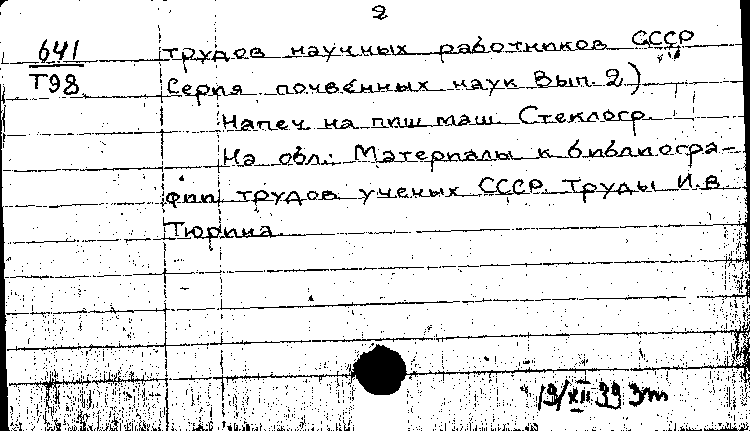 2
641
Т98
трудов научных работников СССР
Серия почвенных наук Вып. 2)
Напеч. на пиш. маш. Стеклогр.
На обл.: Материалы к библиогра-
фии трудов ученых СССР. Труды И.В.
Тюрина.
19/XII 39 Эт